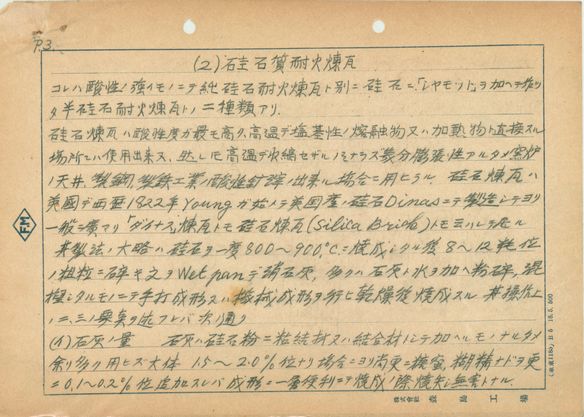 P.3.
(2) 硅石質耐火煉瓦
コレハ酸性ノ強イモノニテ純硅石耐火煉瓦ト別ニ硅石ニ「シヤモット」ヲ加ヘテ作ッ
タ半硅石耐火煉瓦トノ二種類アリ.
硅石煉瓦ハ酸性度ガ最モ高ク、高温デ塩基性ノ熔融物又ハ加熱物ト直接スル
場所ニハ使用出来ヌ. 然シ乍高温デ収縮セザルノミナラズ幾分膨張性アルタメ窯炉
ノ天井、製鋼、製鉄工業ノ酸性 出来ル場合ニ用ヒラル. 硅石煉瓦ハ
英國デ西歴1822年Youngガ始メテ英國産ノ硅石Dinasニテ製造シテヨリ
一般ニ廣マリ「ダイナス」煉瓦トモ硅石煉瓦(Silica Brick)トモ云ハレテ居ル
其製法ノ大略ハ硅石ヲ一度800〜900℃ニ焼成シタル後8〜12粍位
ノ粗粒ニ砕キ之ヲWet panデ消石灰、多クハ石灰ノ水ヲ加ヘ粉砕、混
捏シタルモノニテ手打成形又ハ機械成形ヲ行ヒ乾燥後焼成スル 其操作上
ノ二、三ノ要点ヲ述フレバ次ノ通リ
(イ)石灰ノ量 石灰ハ硅石粉ニ粘結材又ハ結合材トシテ加ヘルモノナルタメ
余リ多ク用ヒズ大体 1.5〜2.0%位ナリ場合ニヨリ尚更ニ 糊精ナドヲ更
ニ0.1〜0.2%位追加スレバ成形ニ一番便利ニテ焼成ノ際焼失シ無害トナル.
FM
株式会社 森島工場
(東京1180) B5 18.5.500